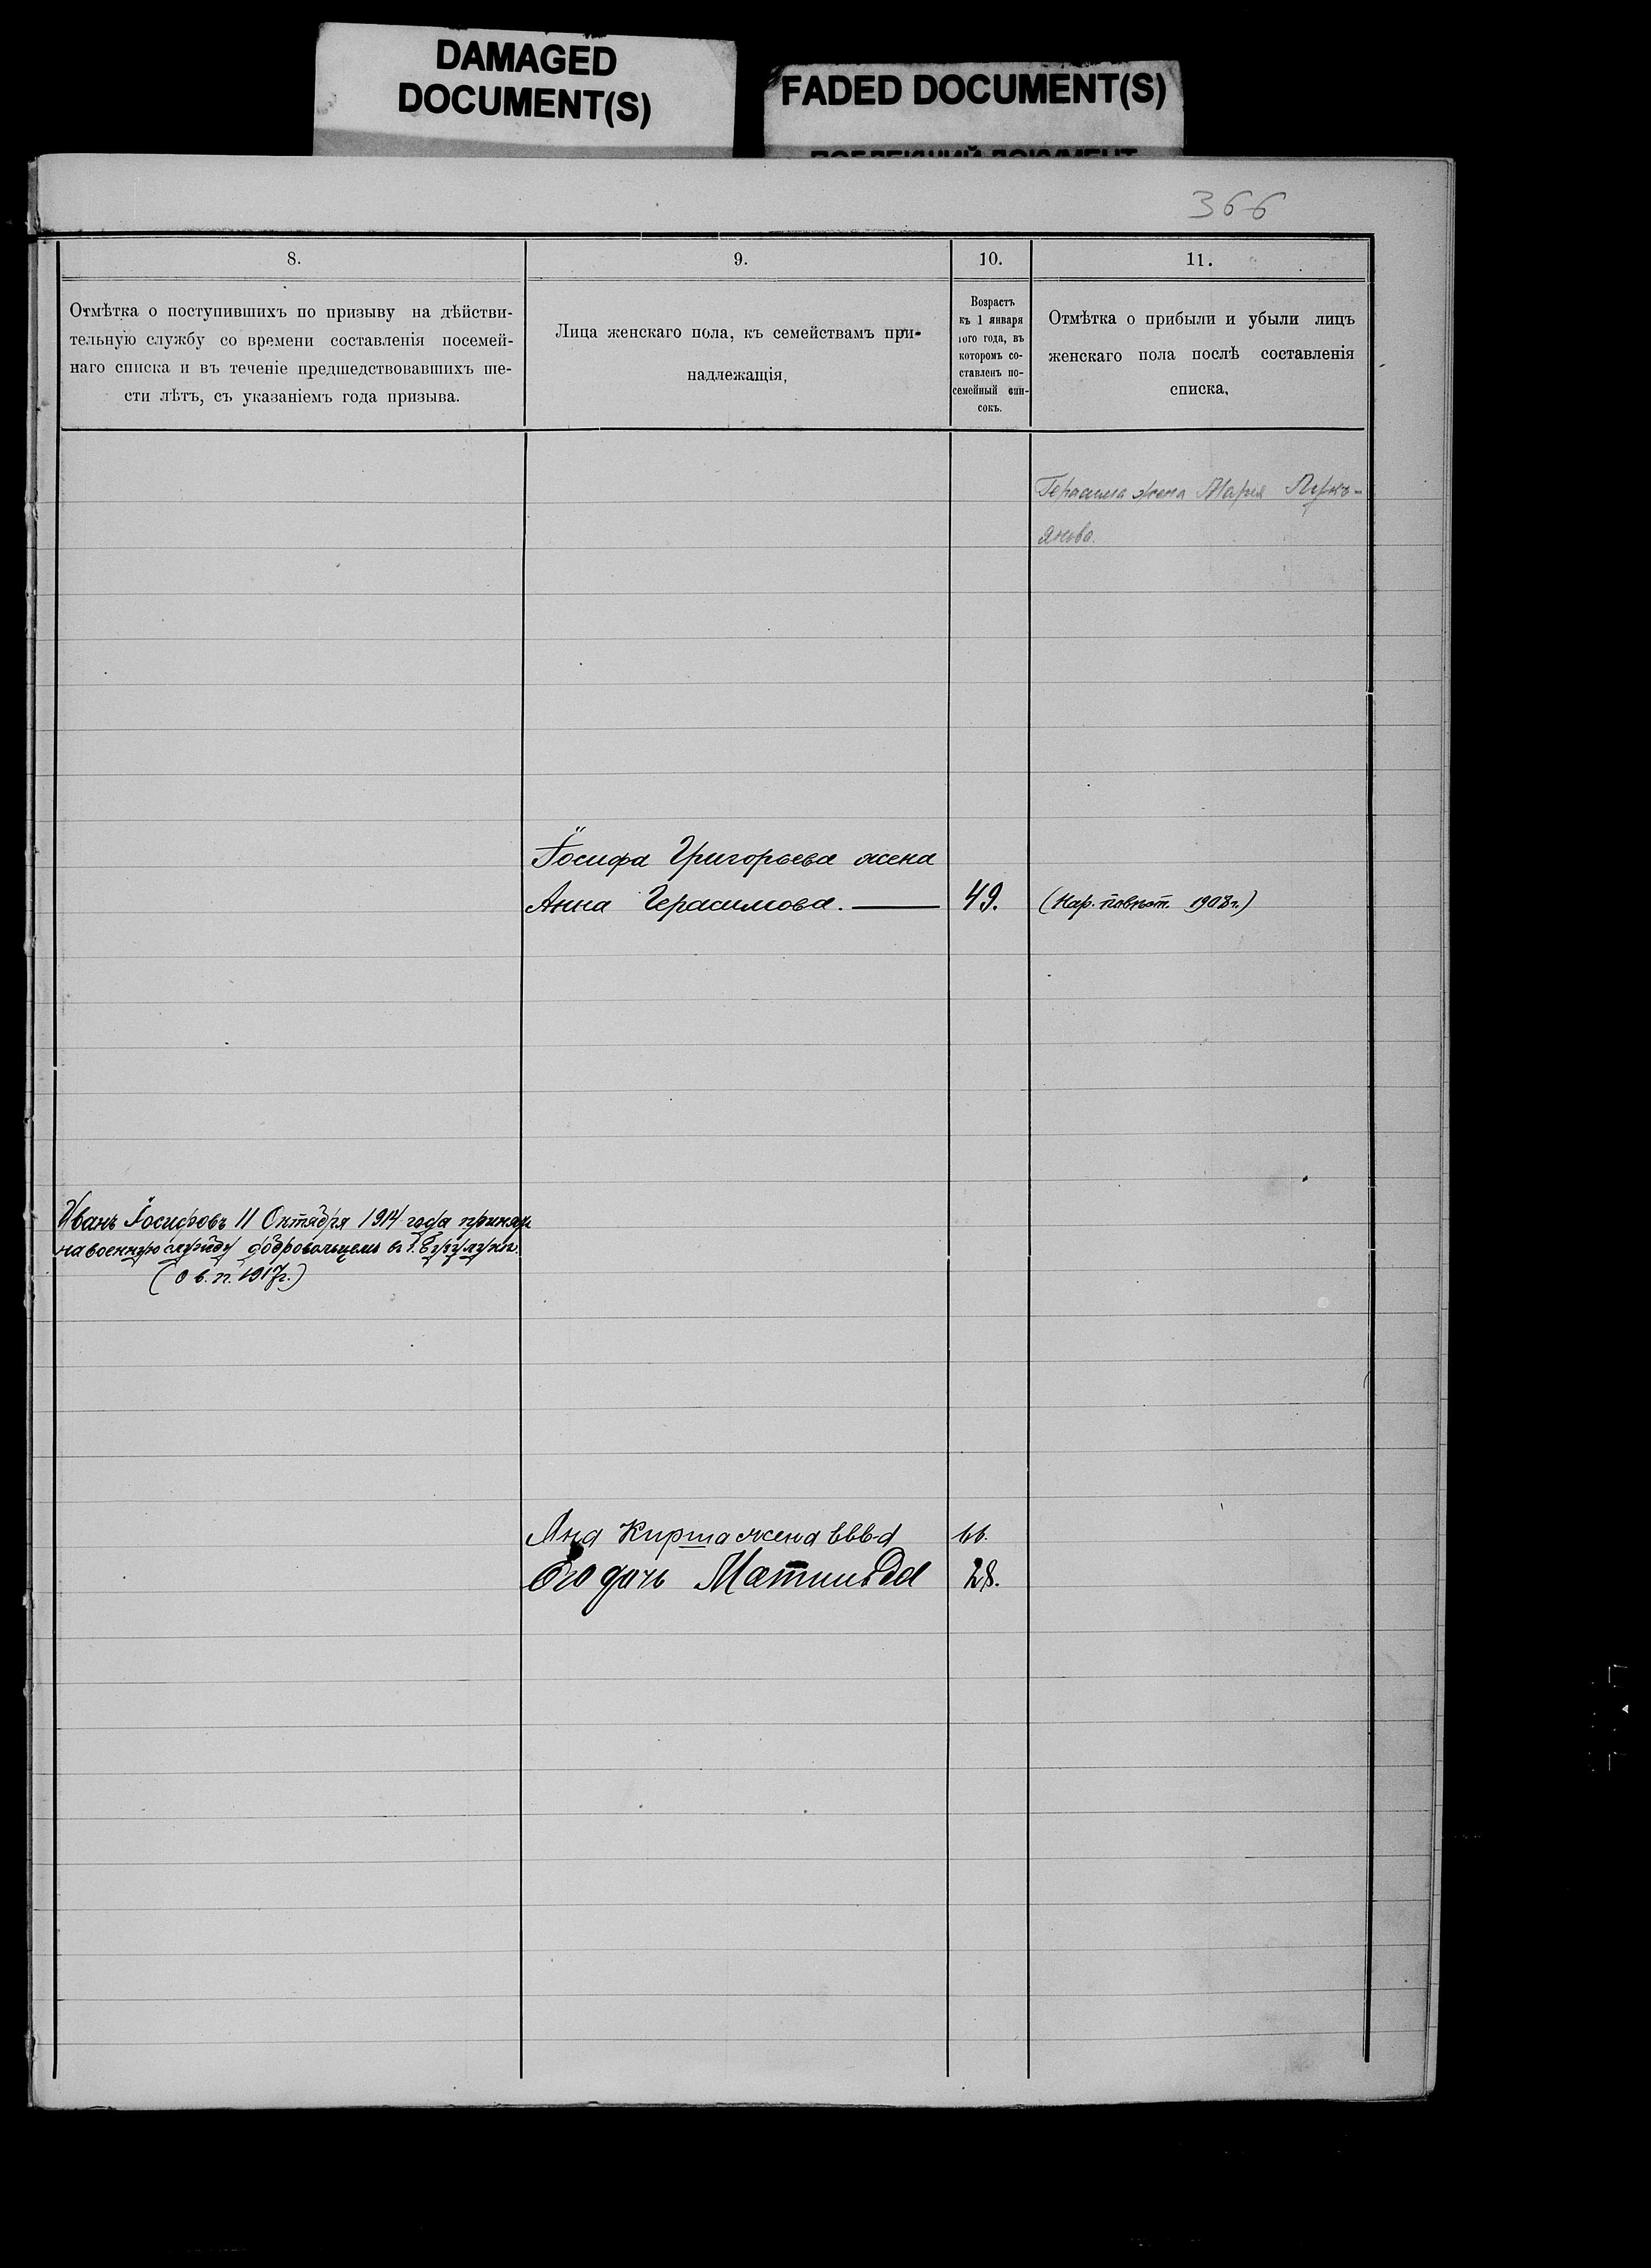 DAMAGED
DOCUMENT(S)
FADED DOCUMENT(S)
366
8.
9.
10.
11.
Отмѣтка о поступившихъ по призыву на дѣйстви-
тельную службу со времени составленія посемей-
наго списка и въ теченіе предшедствовавшихъ ше-
сти лѣтъ, съ указаніемъ года призыва.
Лица женскаго пола, къ семействамъ при-
надлежащія,
Возрастъ
къ 1 января
того года, въ
которомъ со-
ставленъ по-
семейный спи-
сокъ.
Отмѣтка о прибыли и убыли лицъ
женскаго пола послѣ составленія
списка.
Герасима жена Марія
Іосифа Григорьева жена
Анна Герасимова. 49. 1908 г.)
Иванъ Іосифовъ 11 Октября 1914 года принят
на военную службу добровольцемъ в г. Бузулукѣ.
(о в. п. 1917 г.)
Яна Кирша жена Ева 66.
Его дочь Матильда 28.